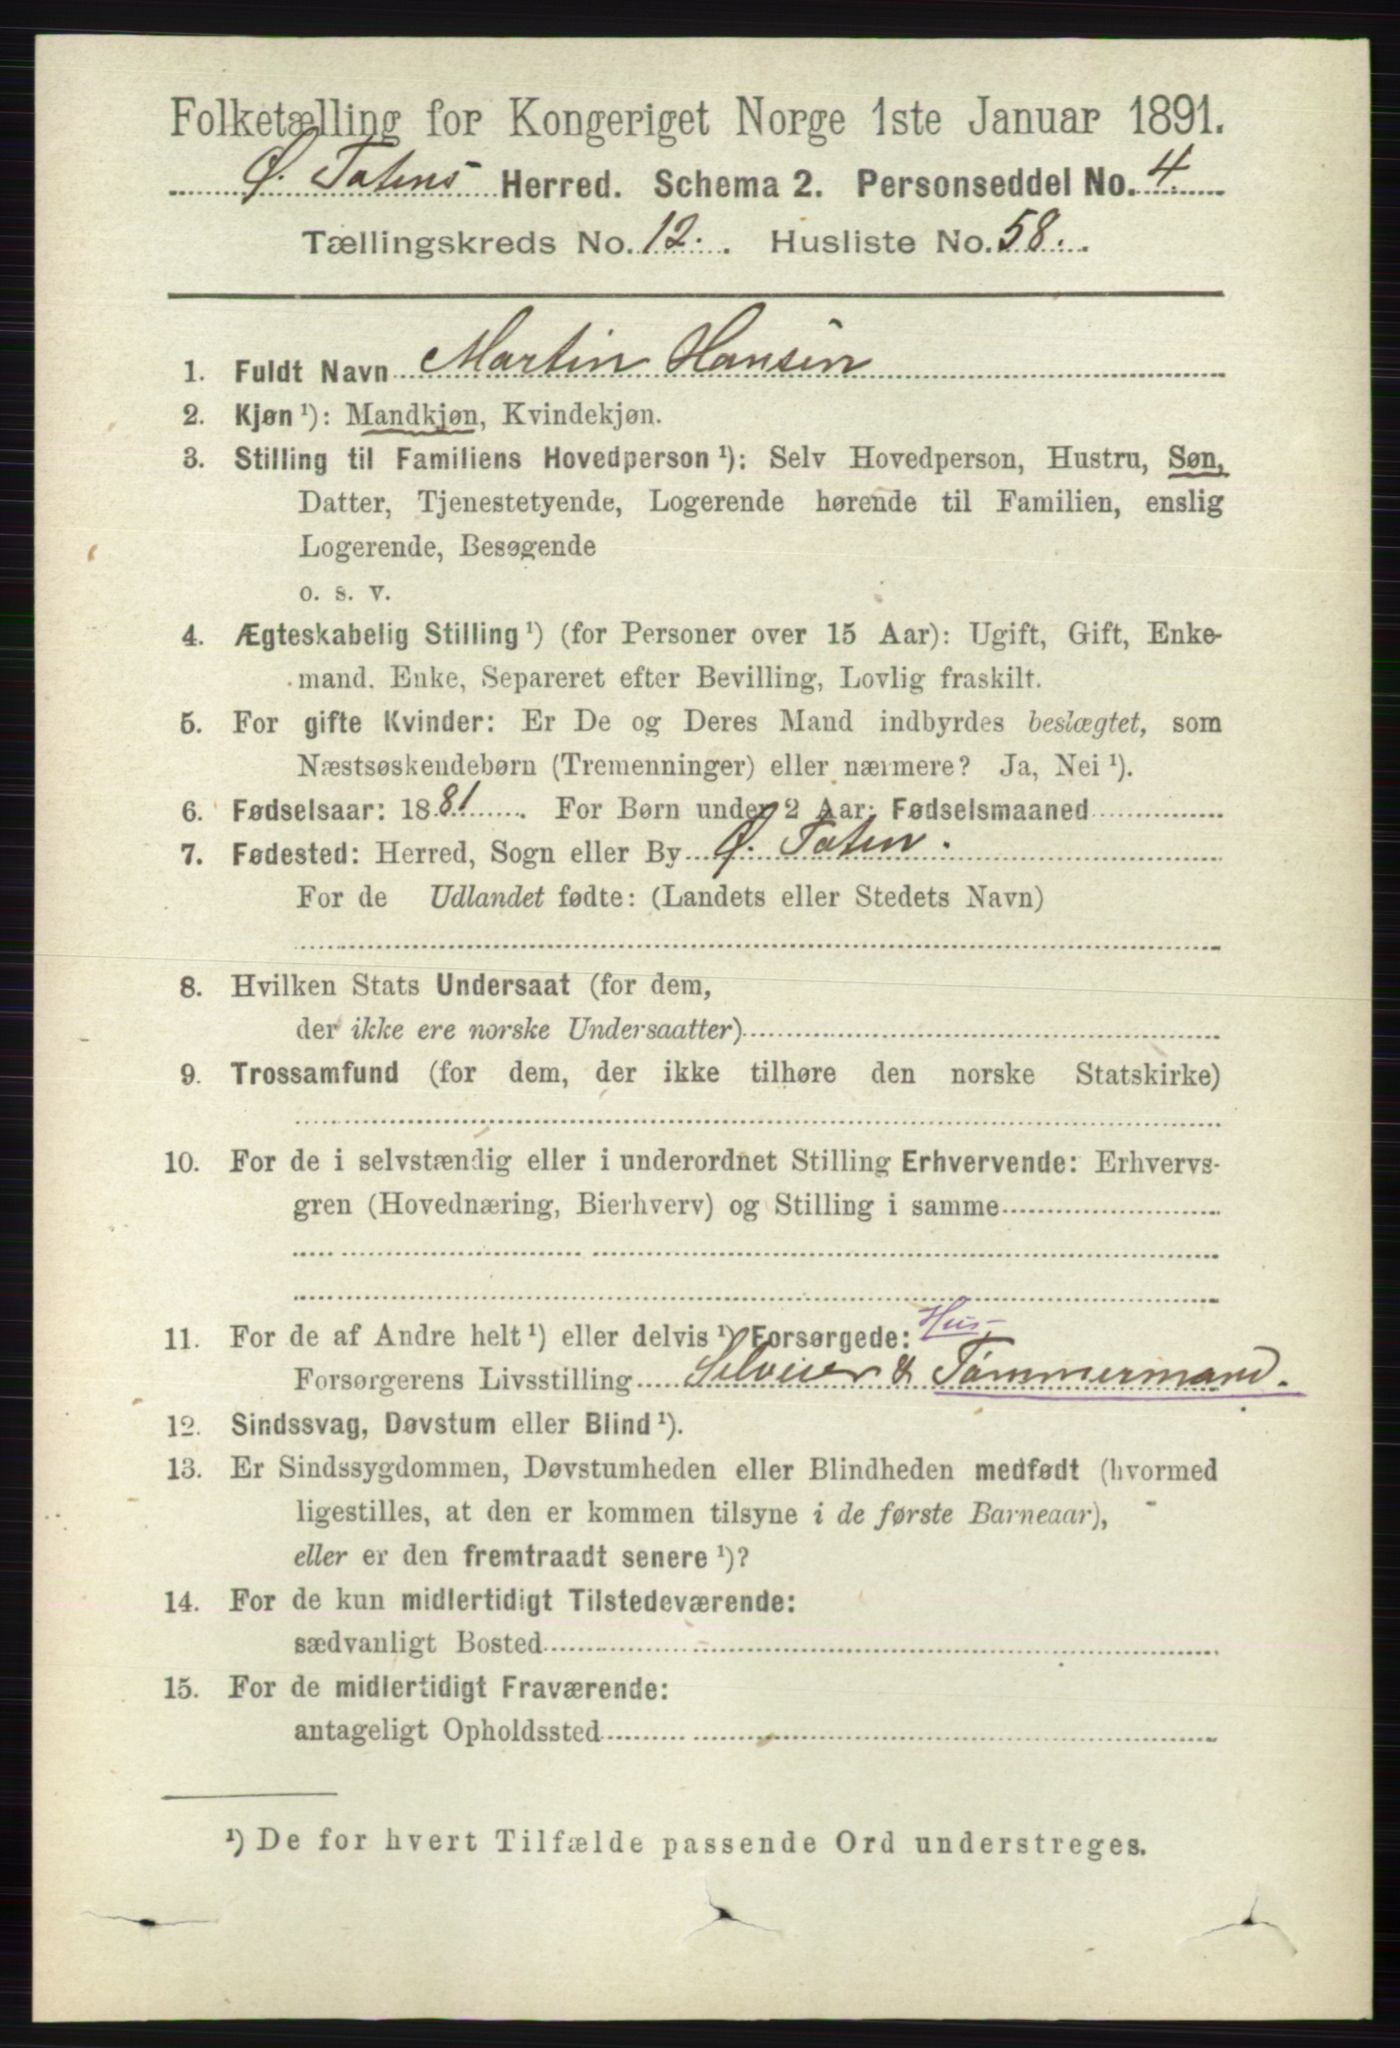 Folketælling for Kongeriget Norge 1ste Januar 1891.
Ø. Totens Herred. Schema 2. Personseddel No. 4.
Tællingskreds No. 12. Husliste No. 58.
1. Fuldt Navn Martin Hansen
2. Kjøn ¹): Mandkjøn, Kvindekjøn.
3. Stilling til Familiens Hovedperson ¹): Selv Hovedperson, Hustru, Søn,
Datter, Tjenestetyende, Logerende hørende til Familien, enslig
Logerende, Besøgende
o. s. v.
4. Ægteskabelig Stilling ¹) (for Personer over 15 Aar): Ugift, Gift, Enke-
mand. Enke, Separeret efter Bevilling, Lovlig fraskilt.
5. For gifte Kvinder: Er De og Deres Mand indbyrdes beslægtet, som
Næstsøskendebørn (Tremenninger) eller nærmere? Ja, Nei ¹).
6. Fødselsaar: 1881. For Børn under 2 Aar: Fødselsmaaned
7. Fødested: Herred, Sogn eller By Ø. Toten.
For de Udlandet fødte: (Landets eller Stedets Navn)
8. Hvilken Stats Undersaat (for dem,
der ikke ere norske Undersaatter)
9. Trossamfund (for dem, der ikke tilhøre den norske Statskirke)
10. For de i selvstændig eller i underordnet Stilling Erhvervende: Erhvervs-
gren (Hovednæring, Bierhverv) og Stilling i samme
11. For de af Andre helt ¹) eller delvis ¹) Forsørgede: Hus-
Forsørgerens Livsstilling Selveier & Tømmermand.
12. Sindssvag, Døvstum eller Blind ¹).
13. Er Sindssygdommen, Døvstumheden eller Blindheden medfødt (hvormed
ligestilles, at den er kommen tilsyne i de første Barneaar),
eller er den fremtraadt senere ¹)?
14. For de kun midlertidigt Tilstedeværende:
sædvanligt Bosted
15. For de midlertidigt Fraværende:
antageligt Opholdssted
¹) De for hvert Tilfælde passende Ord understreges.